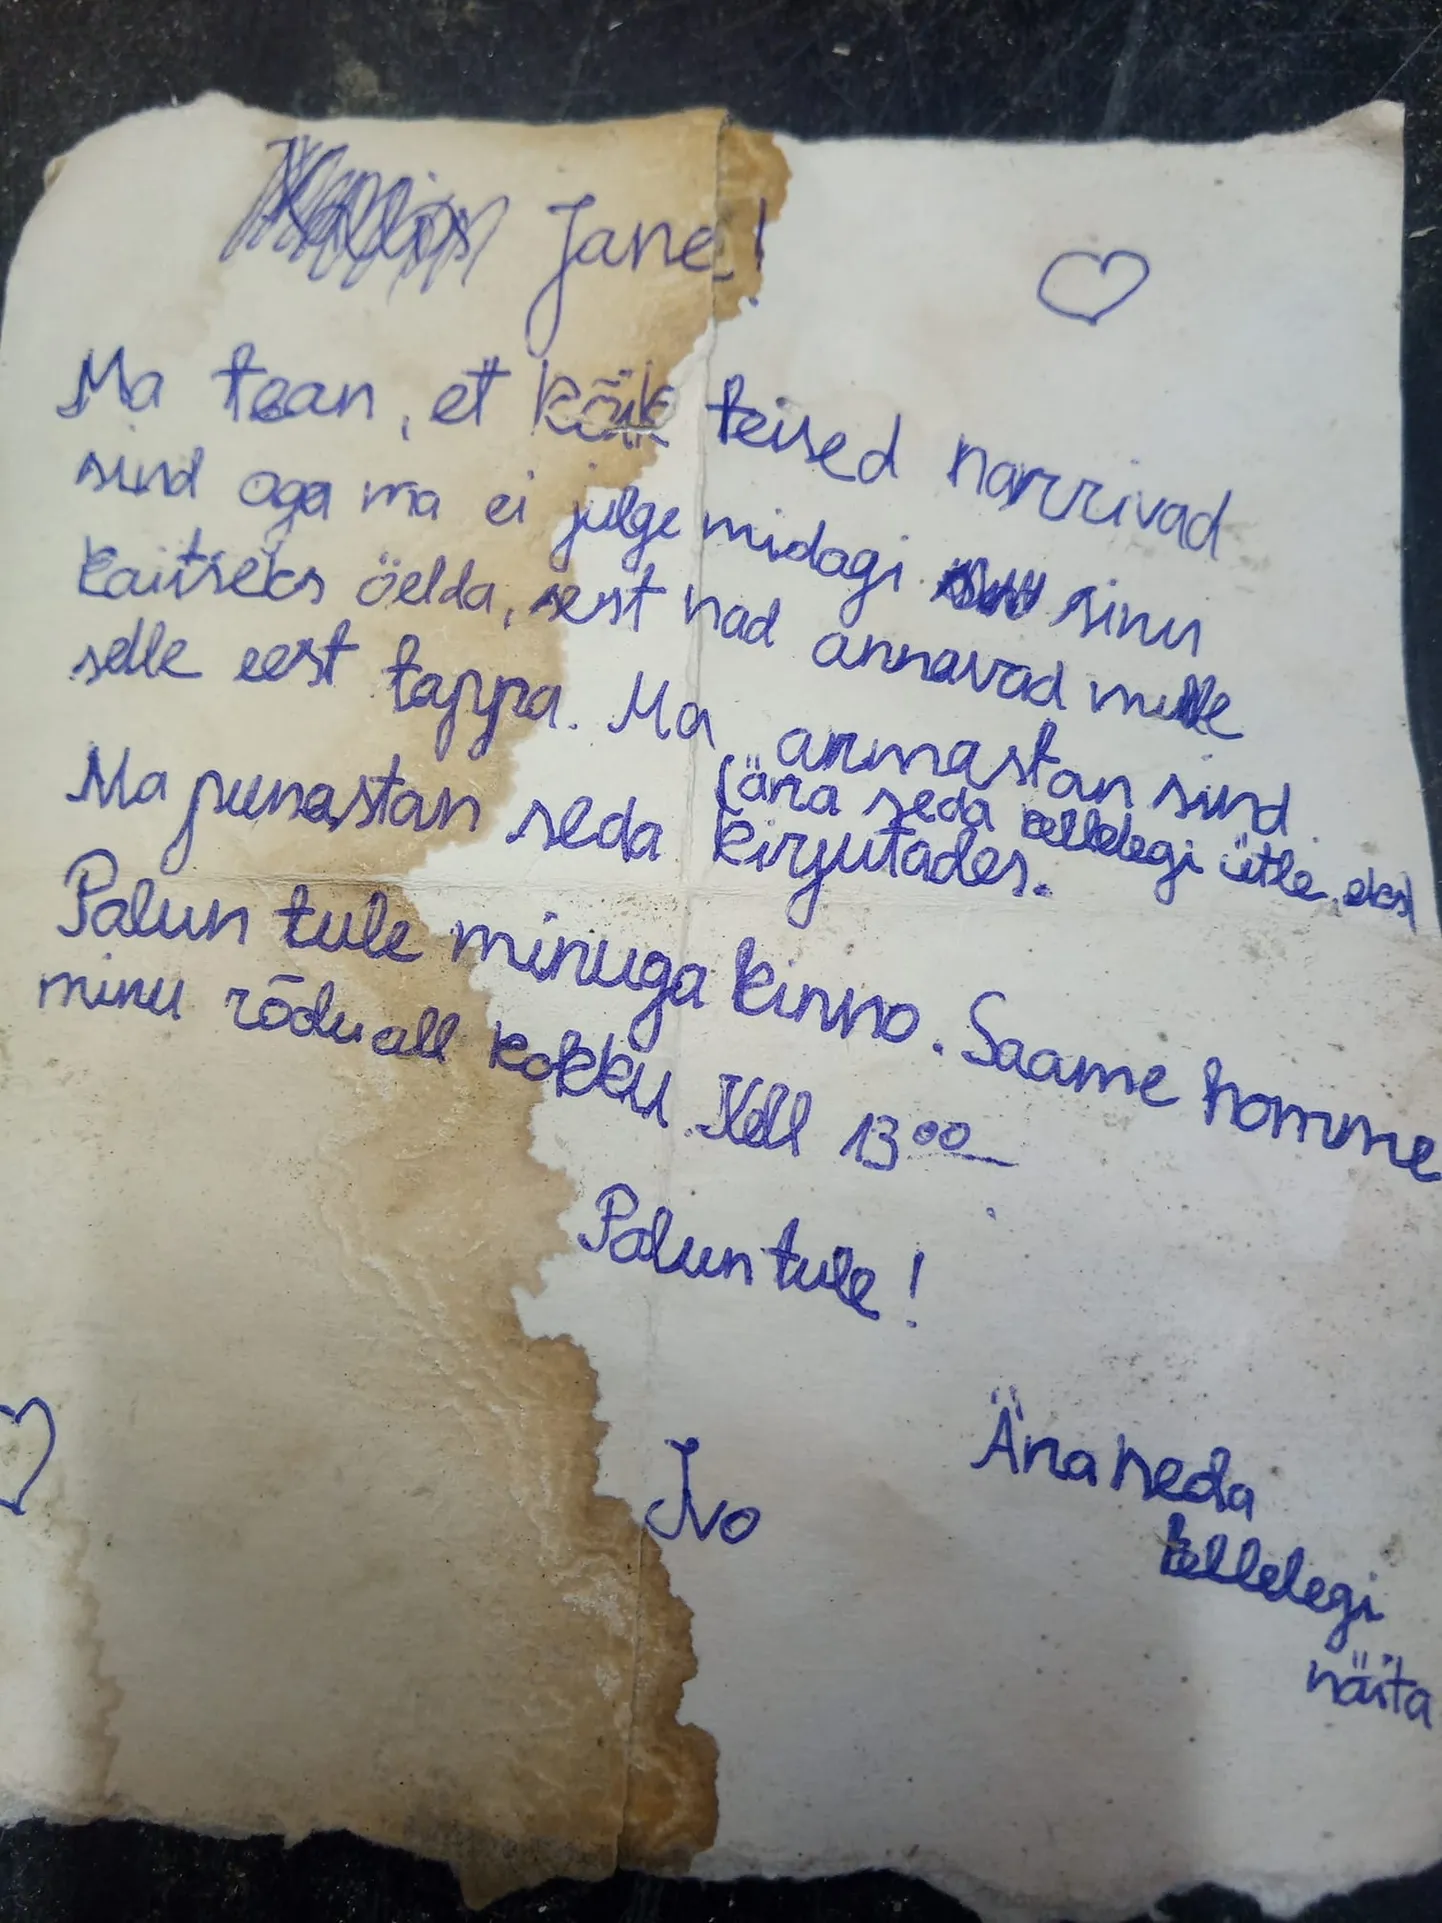 Jane!
Ma tean, et kõik teised narrivad
sind aga ma ei julge midagi sinu
kaitseks öelda, sest nad annavad mulle
selle eest tappa. Ma armastan sind
(ära seda kellelegi ütle, eks)
Ma punastan seda kirjutades.
Palun tule minuga kinno. Saame homme
minu rõdu all kokku. Kell 13 00
Palun tule!
Ivo
Ära seda
kellelegi
näita